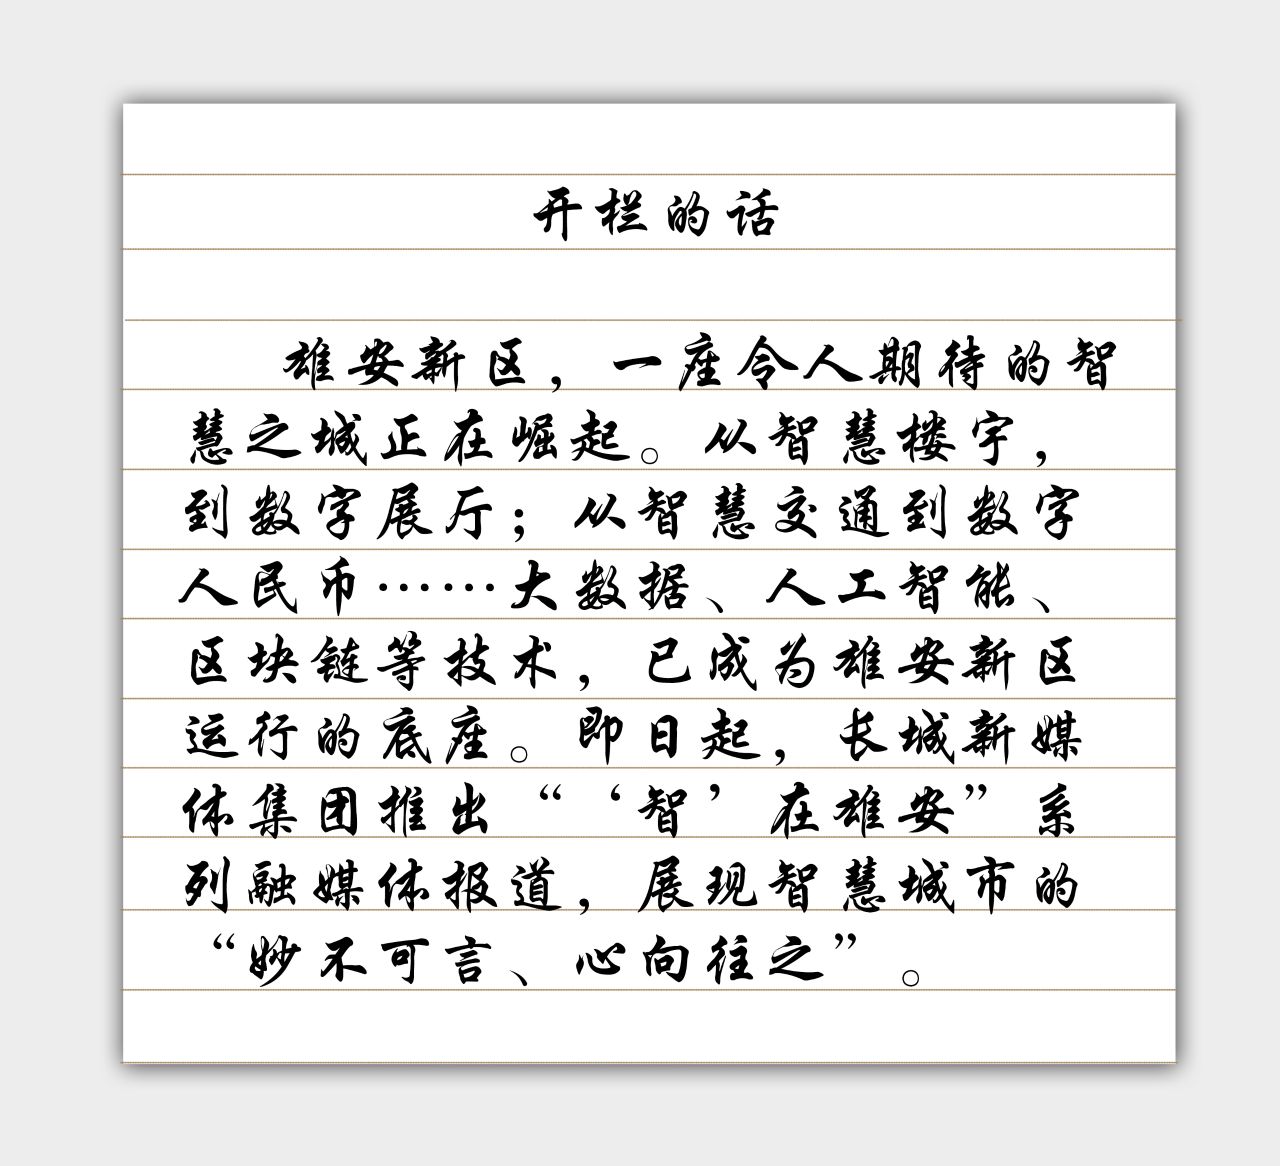 开栏的话
雄安新区，一座令人期待的智
慧之城正在崛起。从智慧楼宇，
到数字展厅；从智慧交通到数字
人民币……大数据、人工智能、
区块链等技术，已成为雄安新区
运行的底座。即日起，长城新媒
体集团推出“‘智’在雄安”系
列融媒体报道，展现智慧城市的
“妙不可言、心向往之”。